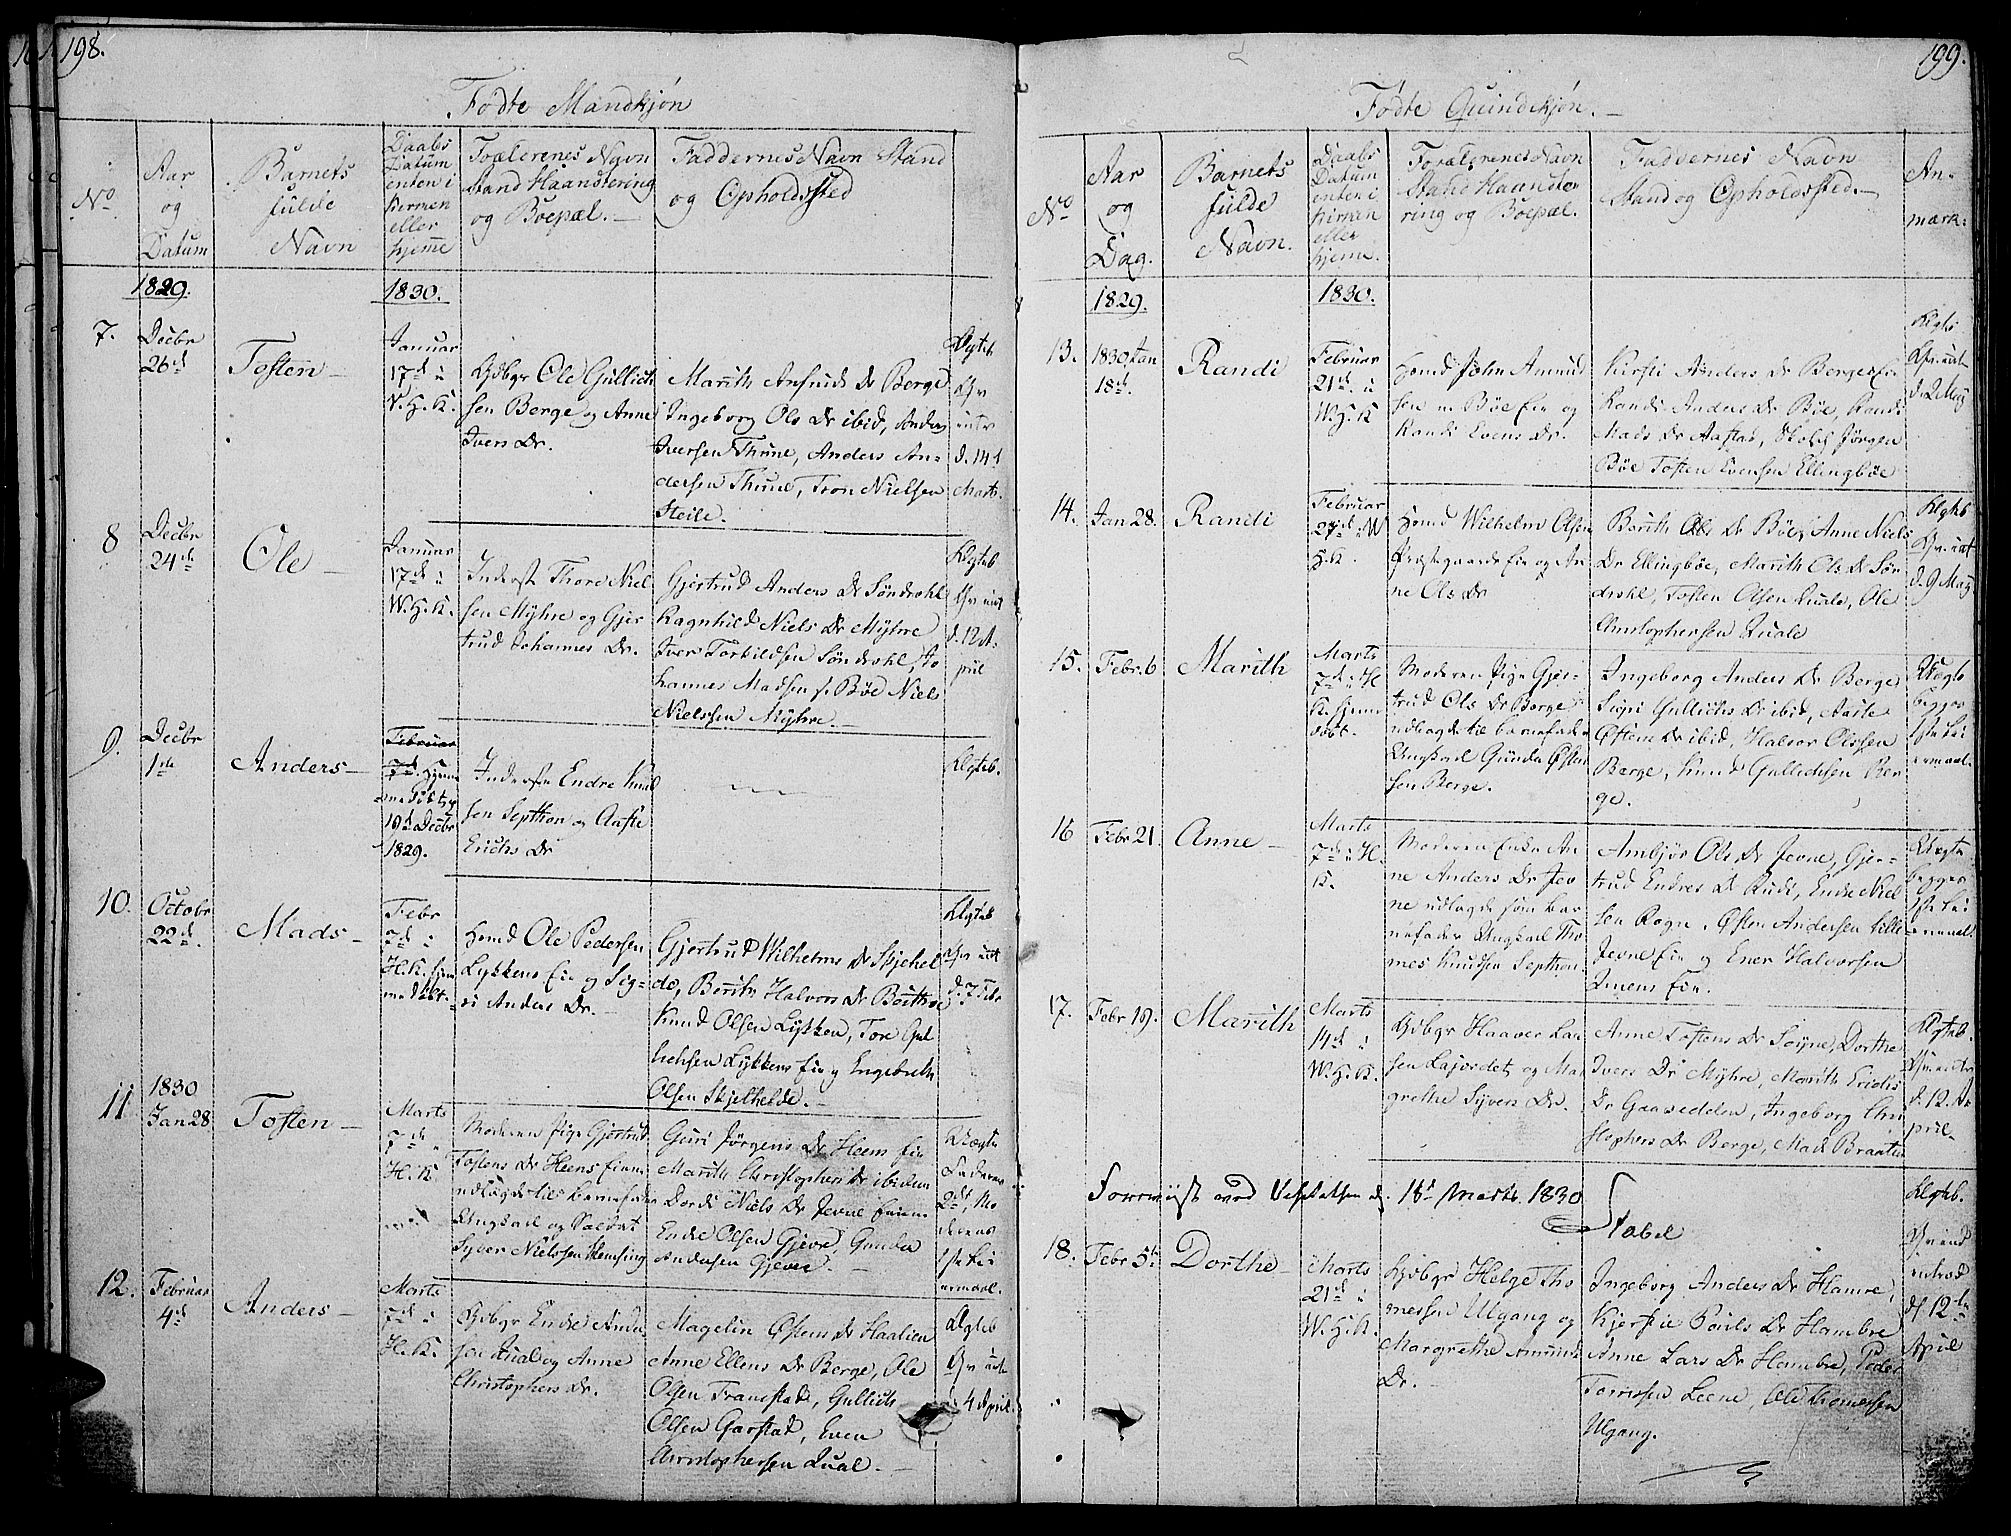 198.
Fødte Mandkjøn
No
Aar
og
Datum
Barnets
fulde
Navn
Daabs
Datum
enten i
Kirken
eller
hjeme
Forælerenes Navn
Stand Haandtering
og Boepæl.
Faddernes Navn Stand
og Opholdssted
1829.
1830.
7.
Decbr
26d
Tosten
Januar
17d i
V.H.K.
Gdbgr Ole Gullich
sen Berge og Anne
Ivers Dr.
Marith Anfinds Dr Berge
Ingeborg Ols Dr ibid, Anders
Iversen Thune, Anders An-
dersen Thune, Tron Nielsen
Steile.
Ægteb
d. 14d
Marts.
8
Decbr
24de
Ole
Januar
17de i
W.H.K.
Inderst Thore Niel
sen Myhre og Gjer
trud Johannes Dr.
Gjertrud Anders Dr Søndrohl
Ragnhild Niels Dr Myhre
Iver Torkildsen Søndrohl Jo
hannes Madsen Bøe Niels
Nielssen Myhre.
Ægteb
d. 12 A-
pril
9.
Decbr
1ste
Anders
Februar
7d. Hjem
19d Decbr
1829.
Inderste Endre Knud
sen Septhon og Aaste
Erichs Dr
Ægteb.
10.
Octobr
22d.
Mads
Febr
7d i
H.K. hjem
me døbt
Hmd Ole Pedersen
Lykkens Eie og Sig-
ri Anders Dr.
Gjertrud Wilhelms Dr Skjehel
de, Berith Halvors Dr
Knud Olsen Lykken, Tore Gul
lichsen Lykkens Eie og Engebreth
Olsen Skjelhelde.
Ægteb
d. 7 Febr
11
1830
Jan 28
Tosten
Marts
7de
H.K
Moderen Pige Gjertrud
Tostens Dr Heens Eie
udlagde til barnefader
Ungkarl og Soldat
Syver Nielssen Remsing
Guri Jørgens Dr Heens Eie
Marith Christophers Dr ibidem
Dordi Niels Dr Jevne Eiem
Endre Olsen Gjevre, Gunder
Andersen Gjevre.
Uægte
Faderens
2det, Mo
derens
1ste Lei
ermaal.
12.
Februar
4d
Anders
Marts
7de i
H.K.
Gdbgr Endre Ander
sen Qual og Anne
Christophers Dr.
Magelin Østens Dr Haalien
Anne Ellens Dr Berge, Ole
Olsen Franstad, Gullich
Olsen Garstad, Even
Christophersen Qual.
Ægteb
4 April.
199.
Fødte Quindekjøn.
No
Aar
og
Dag.
Barnets
fulde
Navn.
Daabs
Datum
enten i
Kirken
eller
hjeme.
Forælerenes Navn
Stand Haandte
ring og Boepæl.
Faddernes Navn
Stand og Opholdssted.
An-
mærk.
1829.
1830.
13.
1830 Jan
18d.
Randi
Februar
21d. i
W.H.K
Hmd John Amund
sen Bøe Eie og
Randi Evens Dr.
Kirsti Anders Dr Berges Eie
Randi Anders Dr Bøe, Randi
Mads Dr Aastad, Jørgen
Bøe Tosten Evensen Ellingbøe
Ægteb
d. 2 May
14.
Jan 28.
Randi
Februar
W
H.K.
Hmd Wilhelm Olsen
Præstegaards Eie og An
ne Ols Dr
Berith Ols Dr Bøe, Anne Niels
Dr Ellingbøe, Marith Ols Dr Søn
drohl, Tosten Olsen Quale, Ole
Christophersen Quale
Ægteb
d. 9 May
15.
Febr. 6
Marith
Marts
7de i H
K. hjeme
døbt.
Moderen Pige Gjer-
trud Ols Dr Berge
udlagde til barnefader
Ungkarl Gunder Østen
sen Berge.
Ingeborg Anders Dr Berge
Sigri Gullichs Dr ibid, Aaste
Østens Dr ibid, Halvor Olssen
Berge, Knud Gullichsen Ber
ge.
Uægte
begges
1ste Lei
ermaal.
16
Febr 21.
Anne
Marts
7de i H.
K.
Moderen Enke An
ne Anders Dr Jev
ne udlagde som bar
nefader Ungkarl Tho
mes Knudsen Septhon.
Ambjør Ols Dr Jevne, Gjer-
trud Endres Dr Rudi, Endre Niel
sen Rogn, Østen Andersen lille
Jevne Eie og Ener Halvorsen
Jevnens Eie.
Uægte
begges
1ste Lei
ermaal.
17.
Febr 19.
Marith
Marts
14d i
W.H.K.
Gdbgr Haaver Lar
sen Lajordet og Mar
grethe Syvers Dr.
Anne Tostens Dr Søyne, Dorthe
Ivers Dr Myhre, Marith Erichs
Dr Gaardedden, Ingeborg Chri
stophers Dr Berge, Mads Braaten
Ægteb.
d. 12. A
pril.
Foreviist ved Visitatsen d. 18d Marts. 1830
Stabel
18.
Febr 5te
Dorthe
Marts
21d i
W.H.K.
Gdbgr Helge Tho
messen Ulgang og
Margrethe Amunds
Dr.
Ingeborg Anders Dr Hamre,
Kjersti Pauls Dr Hambre
Anne Lars Dr Hambre, Peder
Tommsen Leene, Ole Thomessen
Ulgang.
Ægteb.
introd
d 12te
April